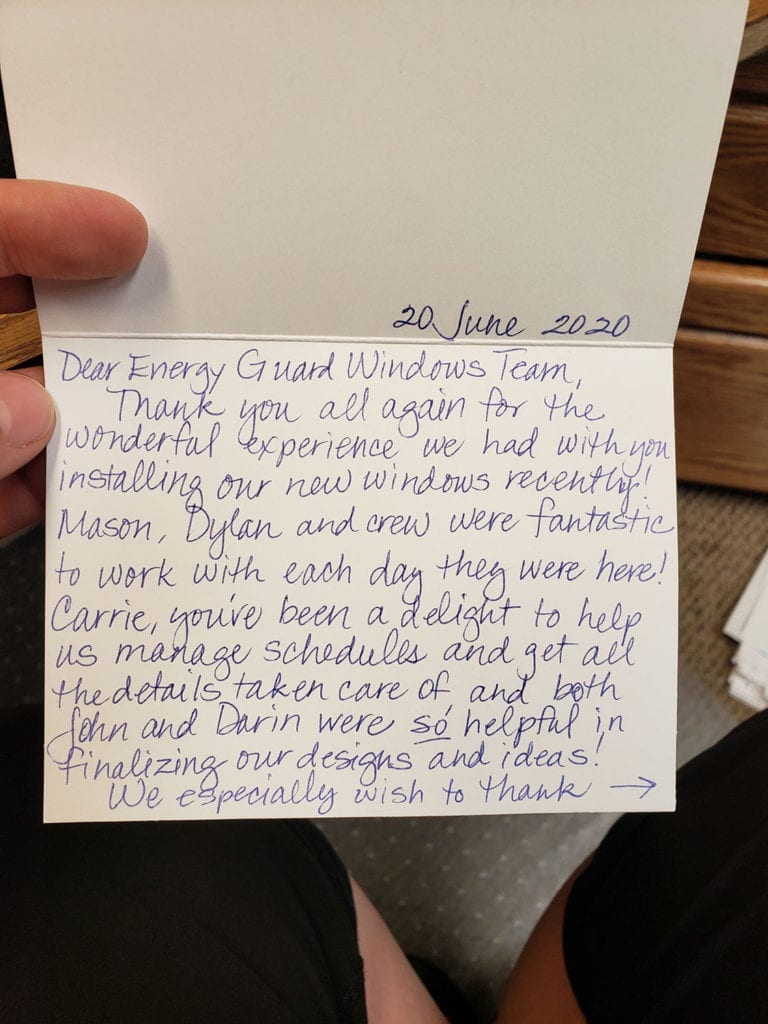 20 June 2020
Dear Energy Guard Windows Team,
Thank you all again for the
wonderful experience we had with you
installing our new windows recently!
Mason, Dylan and crew were fantastic
to work with each day they were here!
Carrie, you've been a delight to help
us manage schedules and get all
the details taken care of and both
John and Darin were so helpful in
finalizing our designs and ideas!
We especially wish to thank →